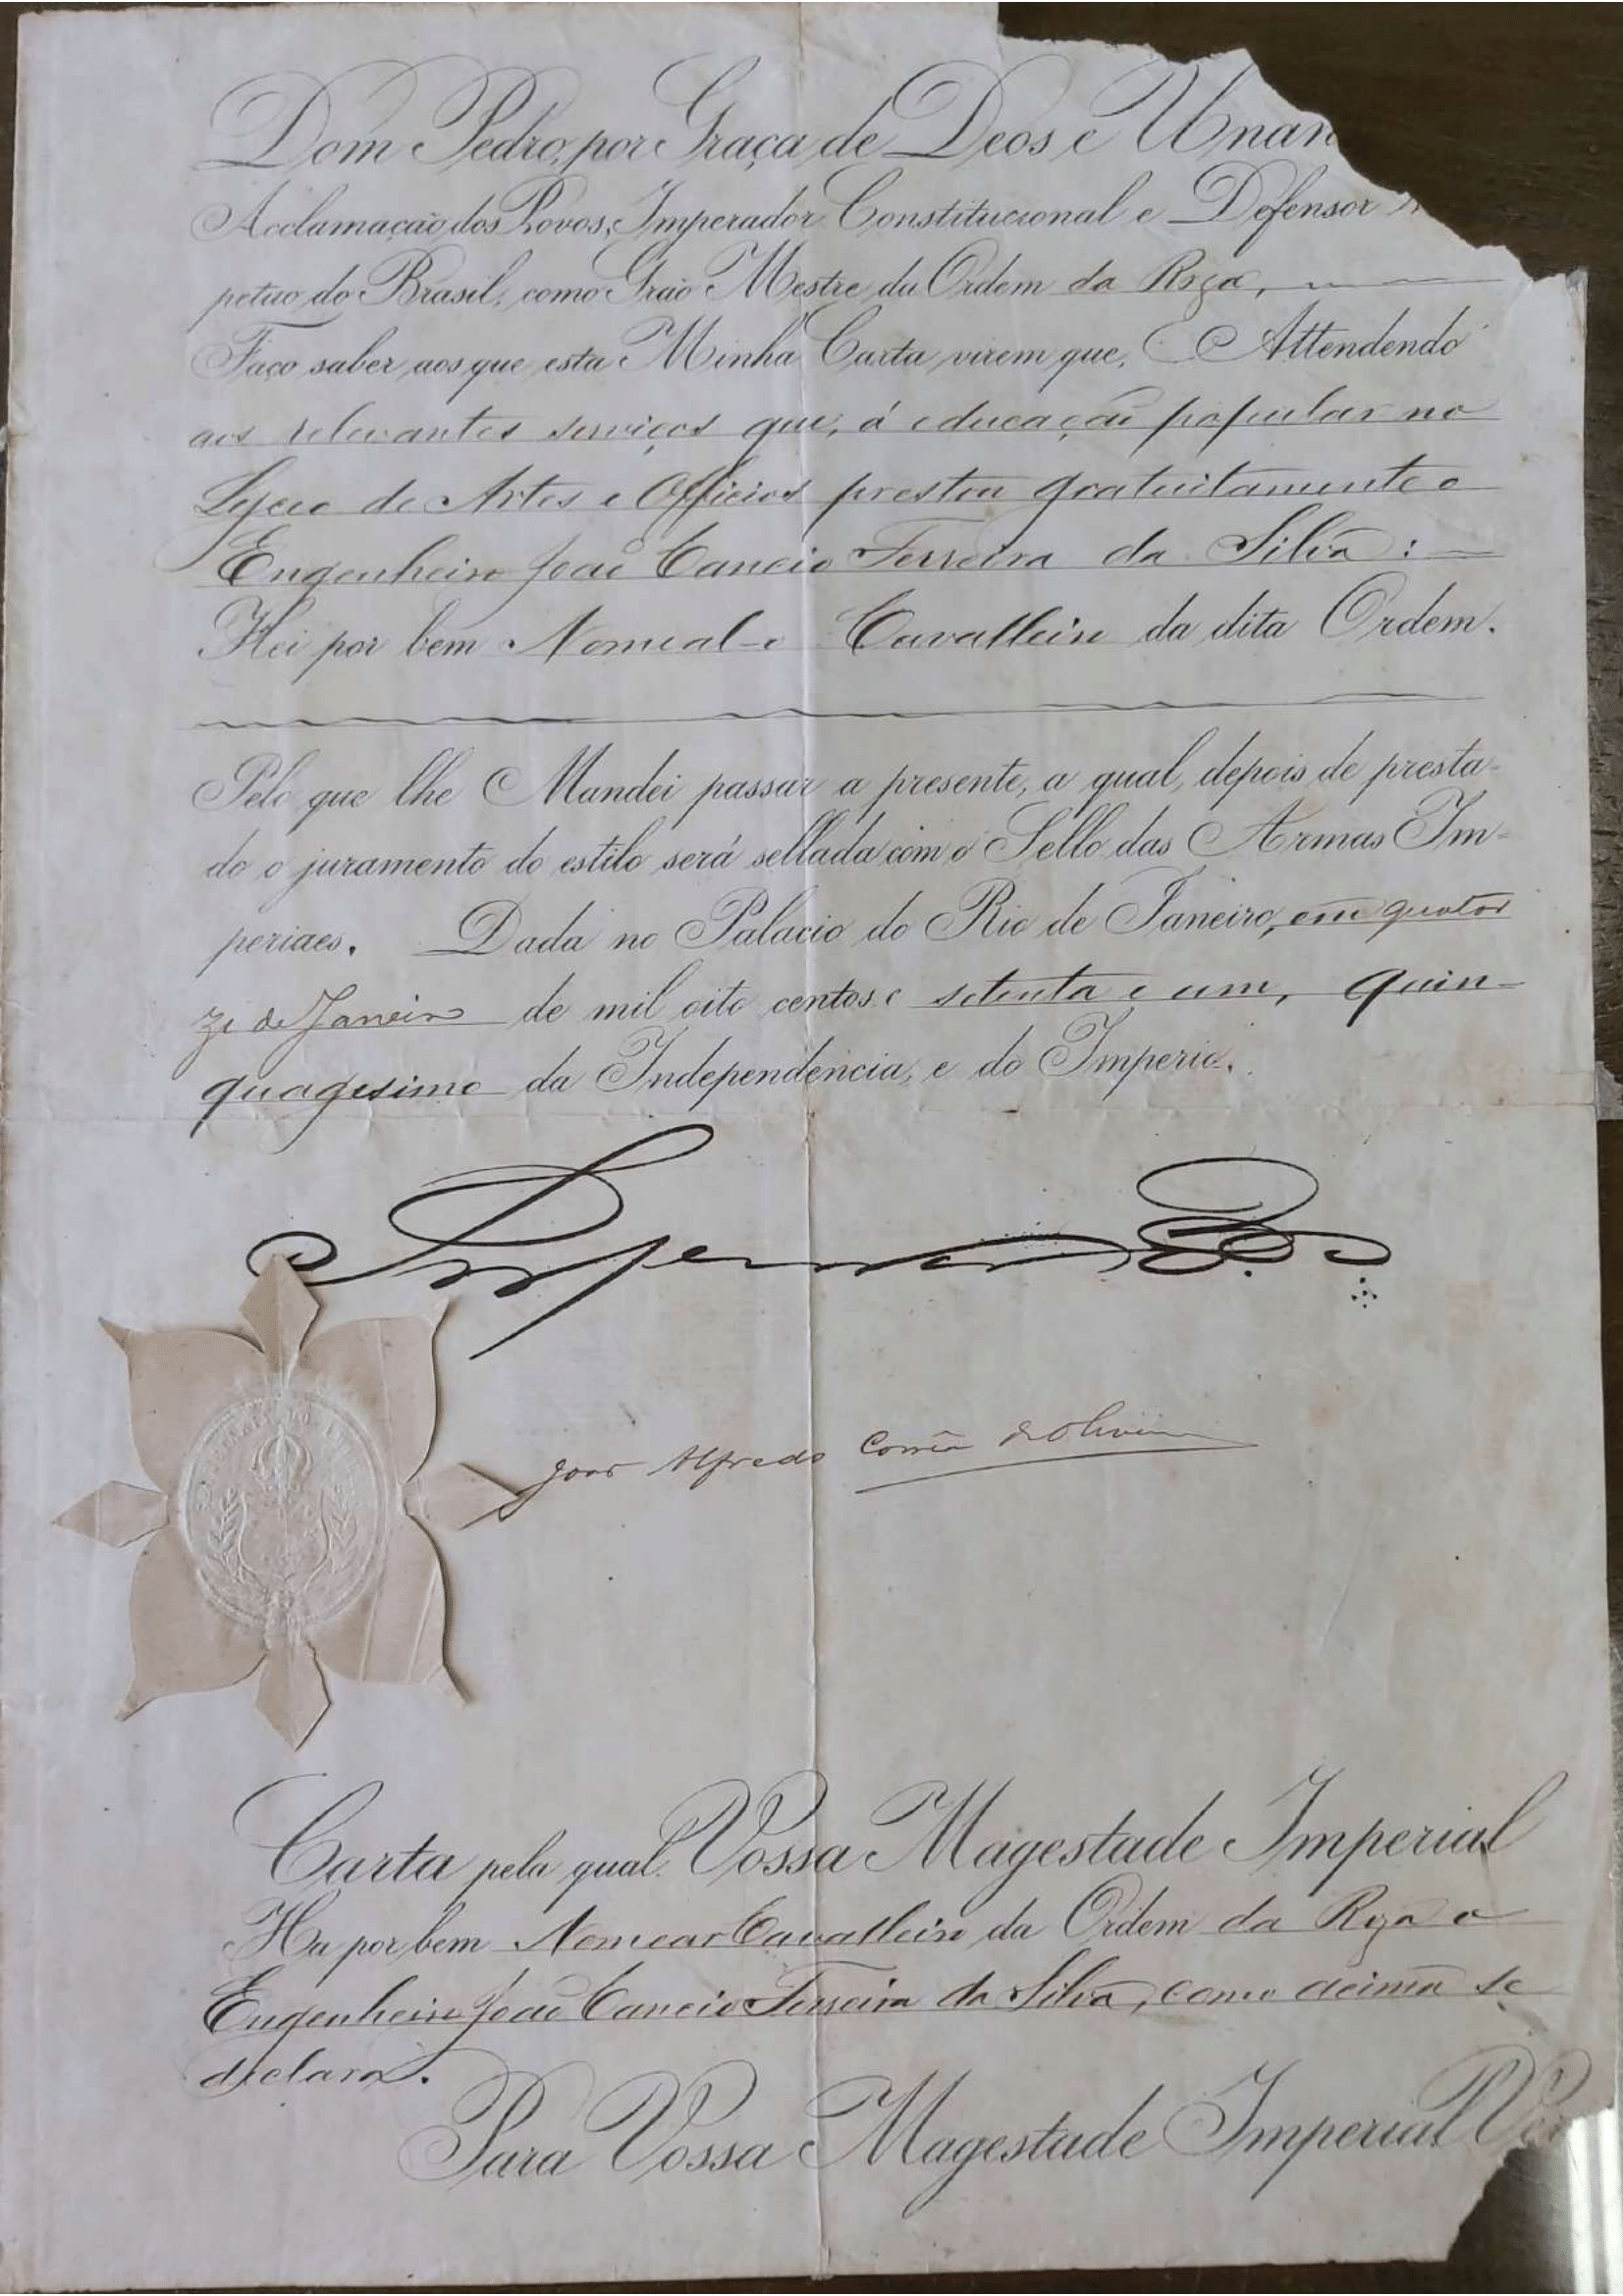 Dom Pedro, por Graça de Deos e Unan
Acclamação dos Povos, Imperador Constitucional e Defensor
petuo do Brasil, como Grão Mestre da Ordem da Roza,
Faço saber aos que esta Minha Carta virem que, Attendendo
aos relevantes serviços que, á educação popular no
Lyceo de Artes e Officios prestou gratuitamente o
Engenheiro João Cancio Ferreira da Silva:
Hei por bem Nomeal-o Cavalleiro da dita Ordem.
Pelo que lhe Mandei passar a presente, a qual, depois de presta-
do o juramento do estilo será sellada com o Sello das Armas Im-
periaes. Dada no Palacio do Rio de Janeiro, em quator
ze de Janeiro de mil oito centos e setenta e um, quin-
quagesimo da Independencia, e do Imperio.
Imperador
João Alfredo Corrêa de Oliveira
Carta pela qual Vossa Magestade Imperial
Ha por bem Nomear Cavalleiro da Ordem da Roza o
Engenheiro João Cancio Ferreira da Silva, como acima se
declara.
Para Vossa Magestade Imperial Ver